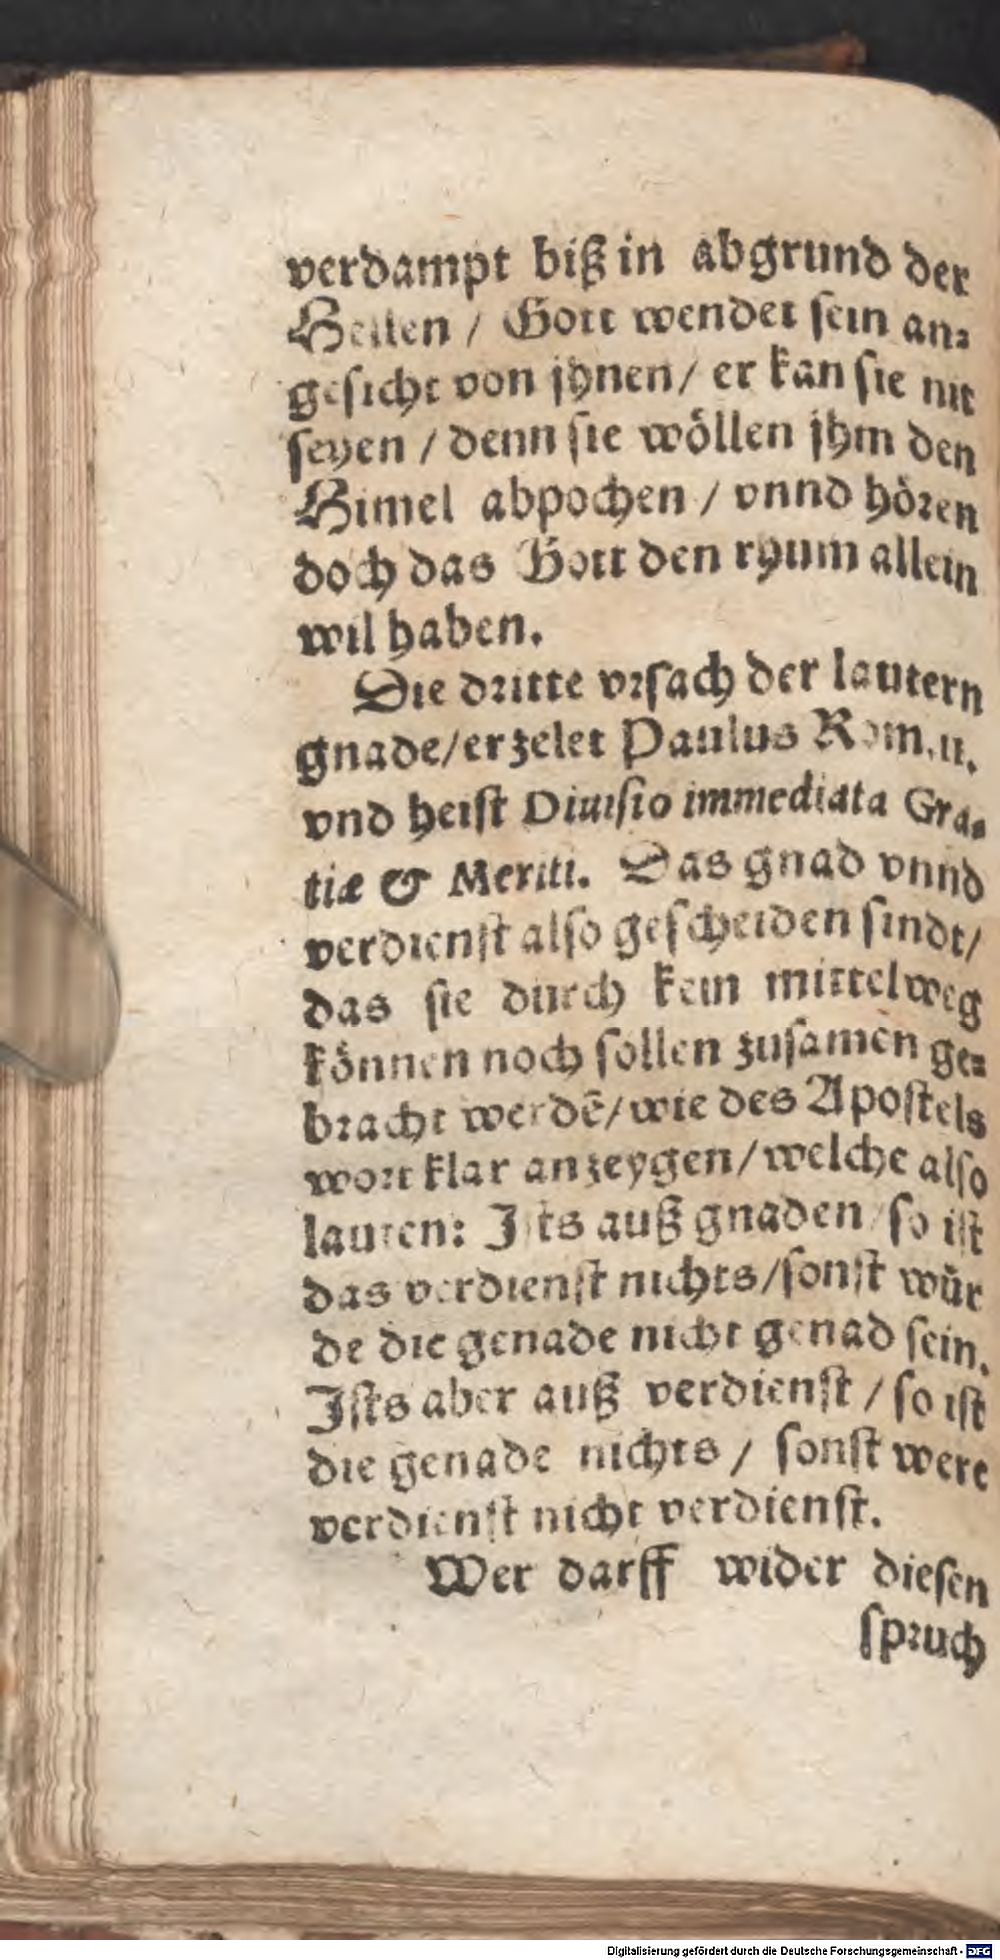 verdampt biß in abgrund der
Hellen / Gott wendet sein an-
gesicht von jhnen / er kan sie nit
sehen / denn sie wöllen jhm den
Himel abpochen / vnnd hören
doch das Gott den rhum allein
wil haben.
Die dritte vrsach der lautern
gnade/erzelet Paulus Rom.11.
vnd heist Diuisio immediata Gra-
tiæ & Meriti. Das gnad vnnd
verdienst also gescheiden sindt/
das sie durch kein mittelweg
können noch sollen zusamen ge-
bracht werdē/wie des Apostels
wort klar anzeygen/welche also
lauten: Ists auß gnaden/so ist
das verdienst nichts/sonst wür
de die genade nicht genad sein.
Ists aber auß verdienst / so ist
die genade nichts / sonst were
verdienst nicht verdienst.
Wer darff wider diesen
spruch
Digitalisierung gefördert durch die Deutsche Forschungsgemeinschaft - DFG